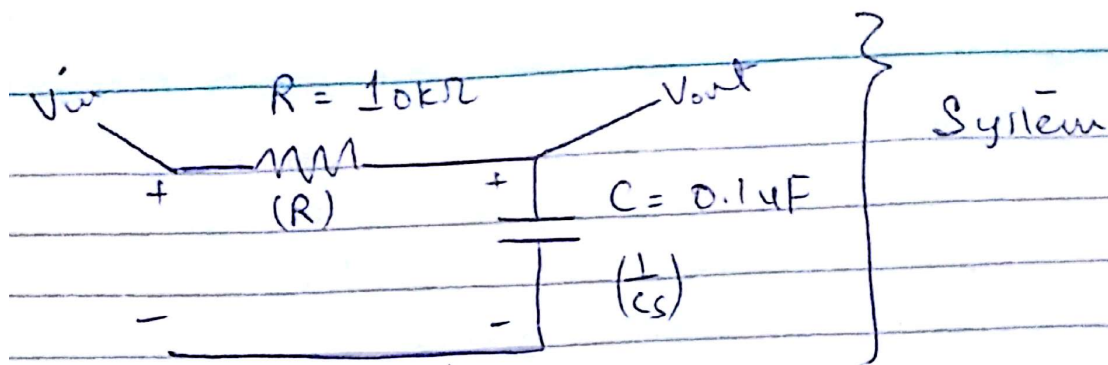 Vin R = 10KΩ Vout
System
+ (R) + C = 0.1uF
(1/CS)
- -